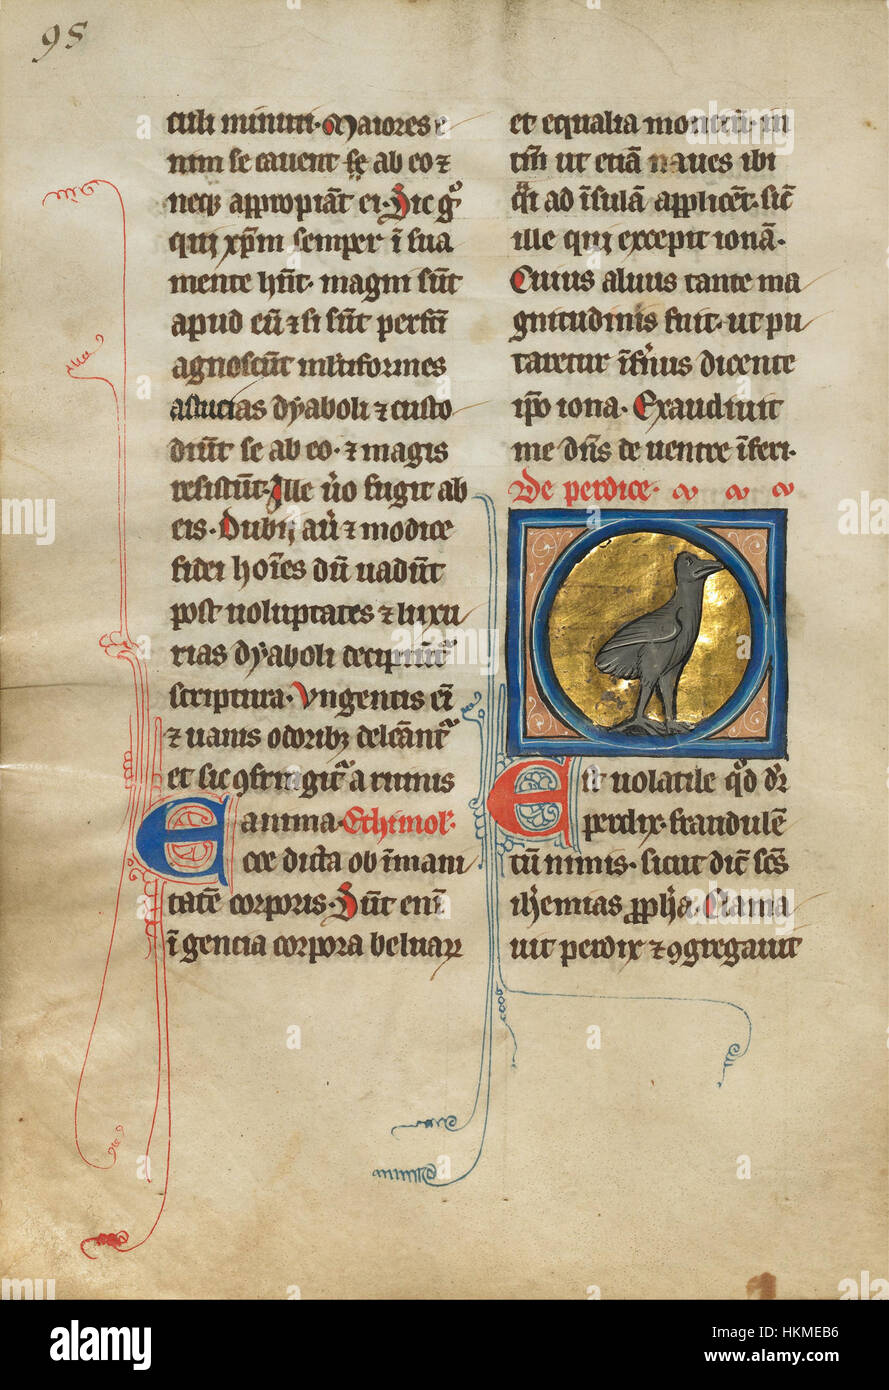 95
culi minuti. Maiores e
nim se cauent se ab eo ⁊
neq; appropiāt ei. Hic gͦ
qui xp̄m semper ī sua
mente hn̄t. magni sūt
apud eū ⁊ si sūt perfcī
agnoscūt ml̄tiformes
astucias dyaboli ⁊ custo
diūt se ab eo. ⁊ magis
resistūt. Ille ūo fugit ab
eis. Dubij aūt ⁊ modice
fidei hoīes dū uadūt
post uoluptates ⁊ luxu
rias dyaboli decipiūtᷣ
scriptura. Vngentis eī
⁊ uariis odorib; delcāntᷣ
et sic ꝯfringitᷣ a ruinis
anima. Ethimol.
Cete dicta ob īmani
tatē corporis. Sūt enī
īgencia corpora beluaꝝ
et equalia moncium. in
tm̄ ut etiā naues ibi
q̄i ad īsulā applicēt. sic̄
ille qui excepit ionā.
Cuius aluus tante ma
gnitudinis fuit. ut pu
taretur īfn̄us dicente
ip̄o iona. Exaudiuit
me dn̄s de uentre īferi.
De perdice.
Est uolatile qͦd dr̄
perdix. fraudulē
tū nimis. sicut dic̄t sc̄s
ih̄emias ꝓph̄a. Clama
uit perdix ⁊ ꝯgregauit
alamy
a
Image ID: HKMEB6
www.alamy.com